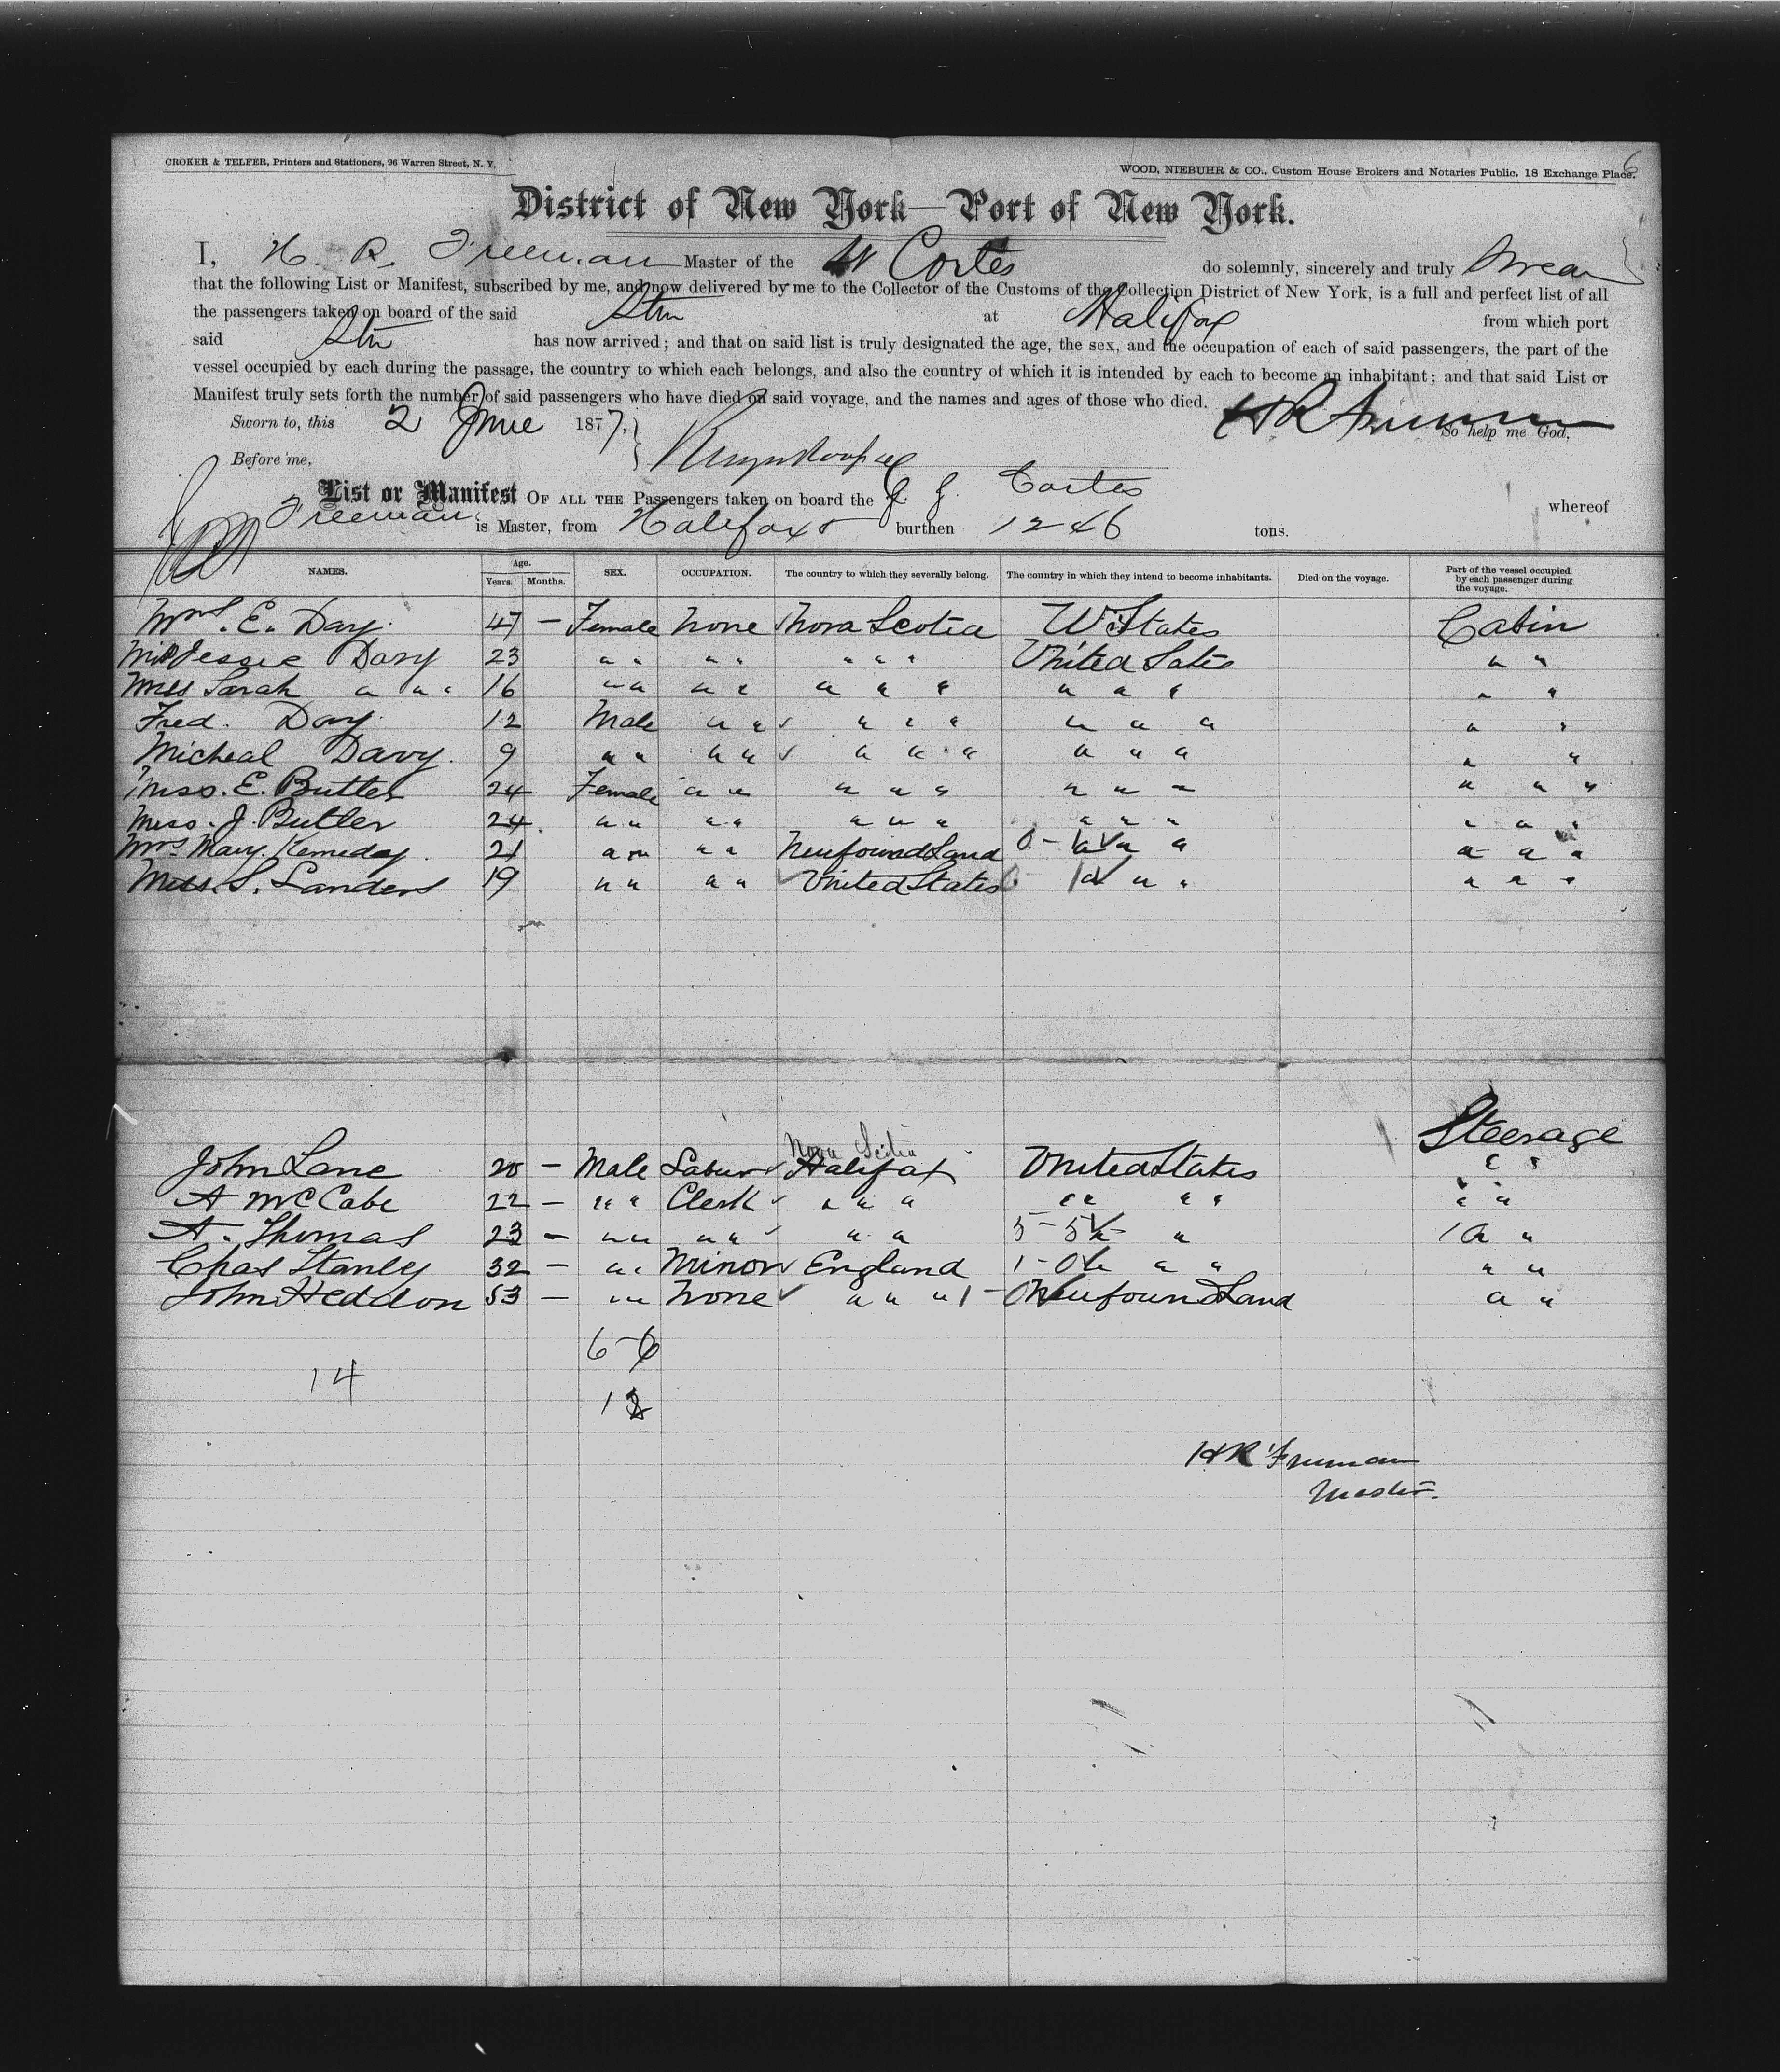 6
CROKER & TELFER, Printers and Stationers, 96 Warren Street, N. Y.
WOOD, NIEBUHR & CO., Custom House Brokers and Notaries Public, 18 Exchange Place.
District of New York—Port of New York.
I, H. R. Freeman Master of the Str Cortes do solemnly, sincerely and truly Swear
that the following List or Manifest, subscribed by me, and now delivered by me to the Collector of the Customs of the Collection District of New York, is a full and perfect list of all
the passengers taken on board of the said Str at Halifax from which port
said Str has now arrived; and that on said list is truly designated the age, the sex, and the occupation of each of said passengers, the part of the
vessel occupied by each during the passage, the country to which each belongs, and also the country of which it is intended by each to become an inhabitant; and that said List or
Manifest truly sets forth the number of said passengers who have died on said voyage, and the names and ages of those who died.
Sworn to, this 2 June 1877, HR Freeman So help me God,
Before me,
List or Manifest OF ALL THE Passengers taken on board the Cortes whereof
Freeman is Master, from Halifax burthen 1246 tons.
NAMES. Age. Years. Months. SEX. OCCUPATION. The country to which they severally belong. The country in which they intend to become inhabitants. Died on the voyage. Part of the vessel occupied by each passenger during the voyage.
Mrs. E. Davy. 47 — Female None Nova Scotia U States Cabin
Miss Jessie Davy 23 " " " " " " " United Sates " "
Miss Sarah " " " 16 " " " " " " " " " " " "
Fred. Davy. 12 Male " " " " " " " " " "
Micheal Davy. 9 " " " " " " " " " " " "
Miss. E. Butler 24 Female " " " " " " " " " " "
Miss. J. Butler 24 " " " " " " " " " " " " "
Mrs. Mary. Kennedy. 21 " " " " NewfoundLand " " " " " "
Miss. S. Landers 19 " " " " United States " " " " " "
Steerage
Nova Scotia
John Lane 20 — Male Labur Halifax United States " "
A McCabe 22 — " " Clerk " " " " " " " "
A. Thomas 23 — " " " " " " 5-5 " " "
Chas Stanley 32 — " " Minor England 1-0 " " " " "
John Heddon 53 — " " None " " " 1- NewfoundLand " "
6-6
14
HR Freeman
Master.